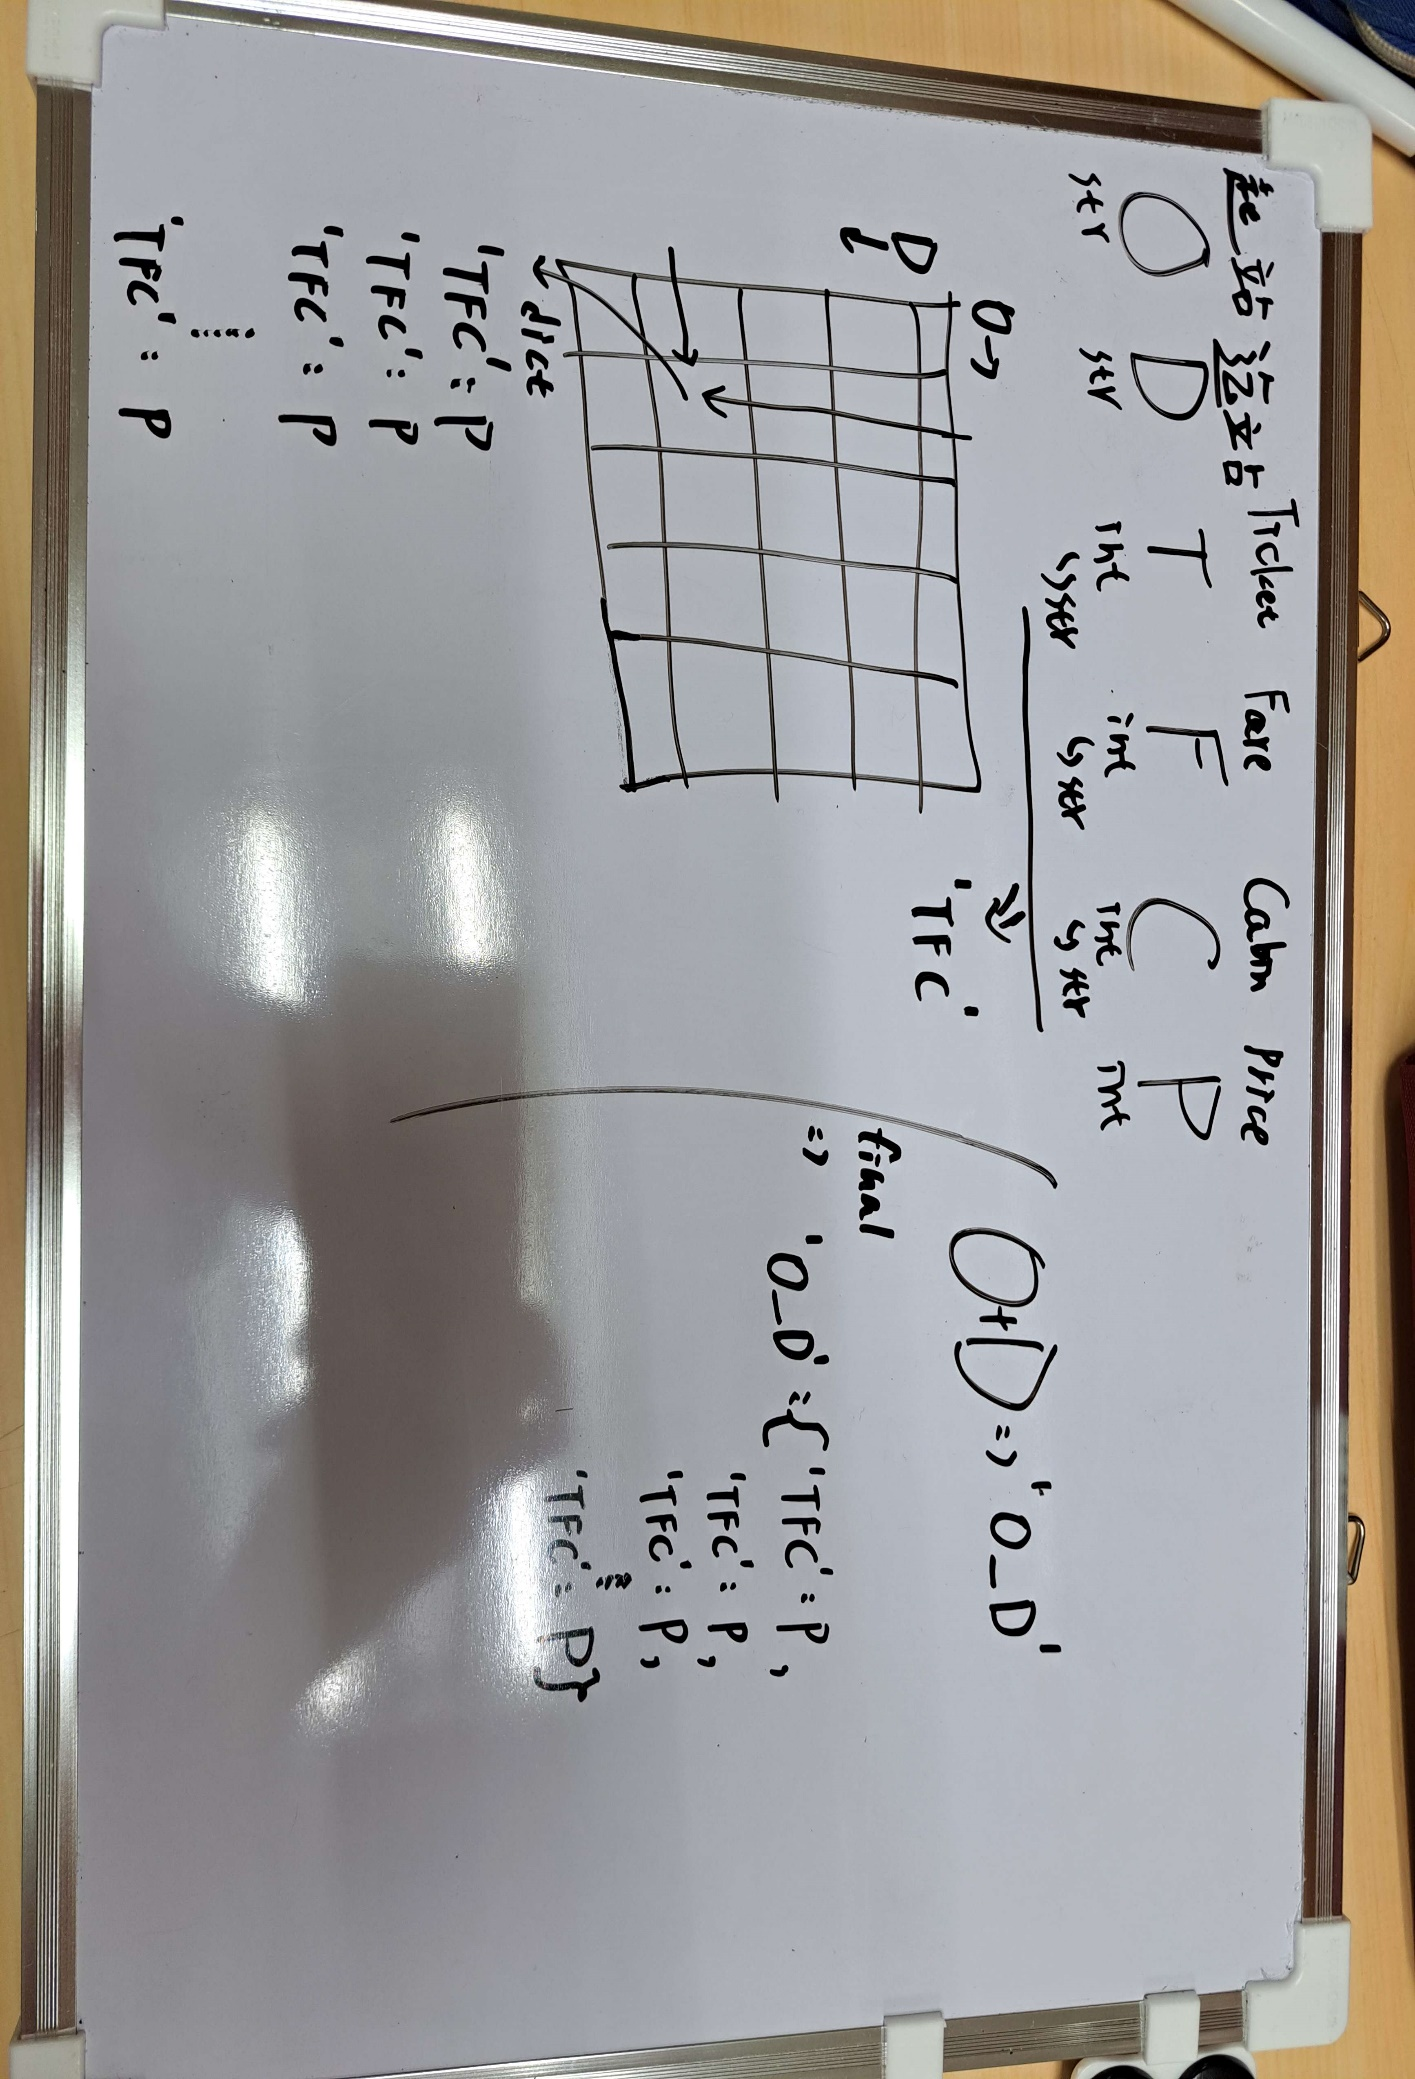 起站 迄站 Ticket Fare Cabin Price
O D T F C P
str str int int int int
↳str ↳str ↳str
'TFC'
O→
D
dict
'TFC': P
'TFC': P
'TFC': P
'TFC': P
O+D => 'O_D'
final
=> 'O_D': {'TFC': P,
'TFC': P,
'TFC': P,
'TFC': P}